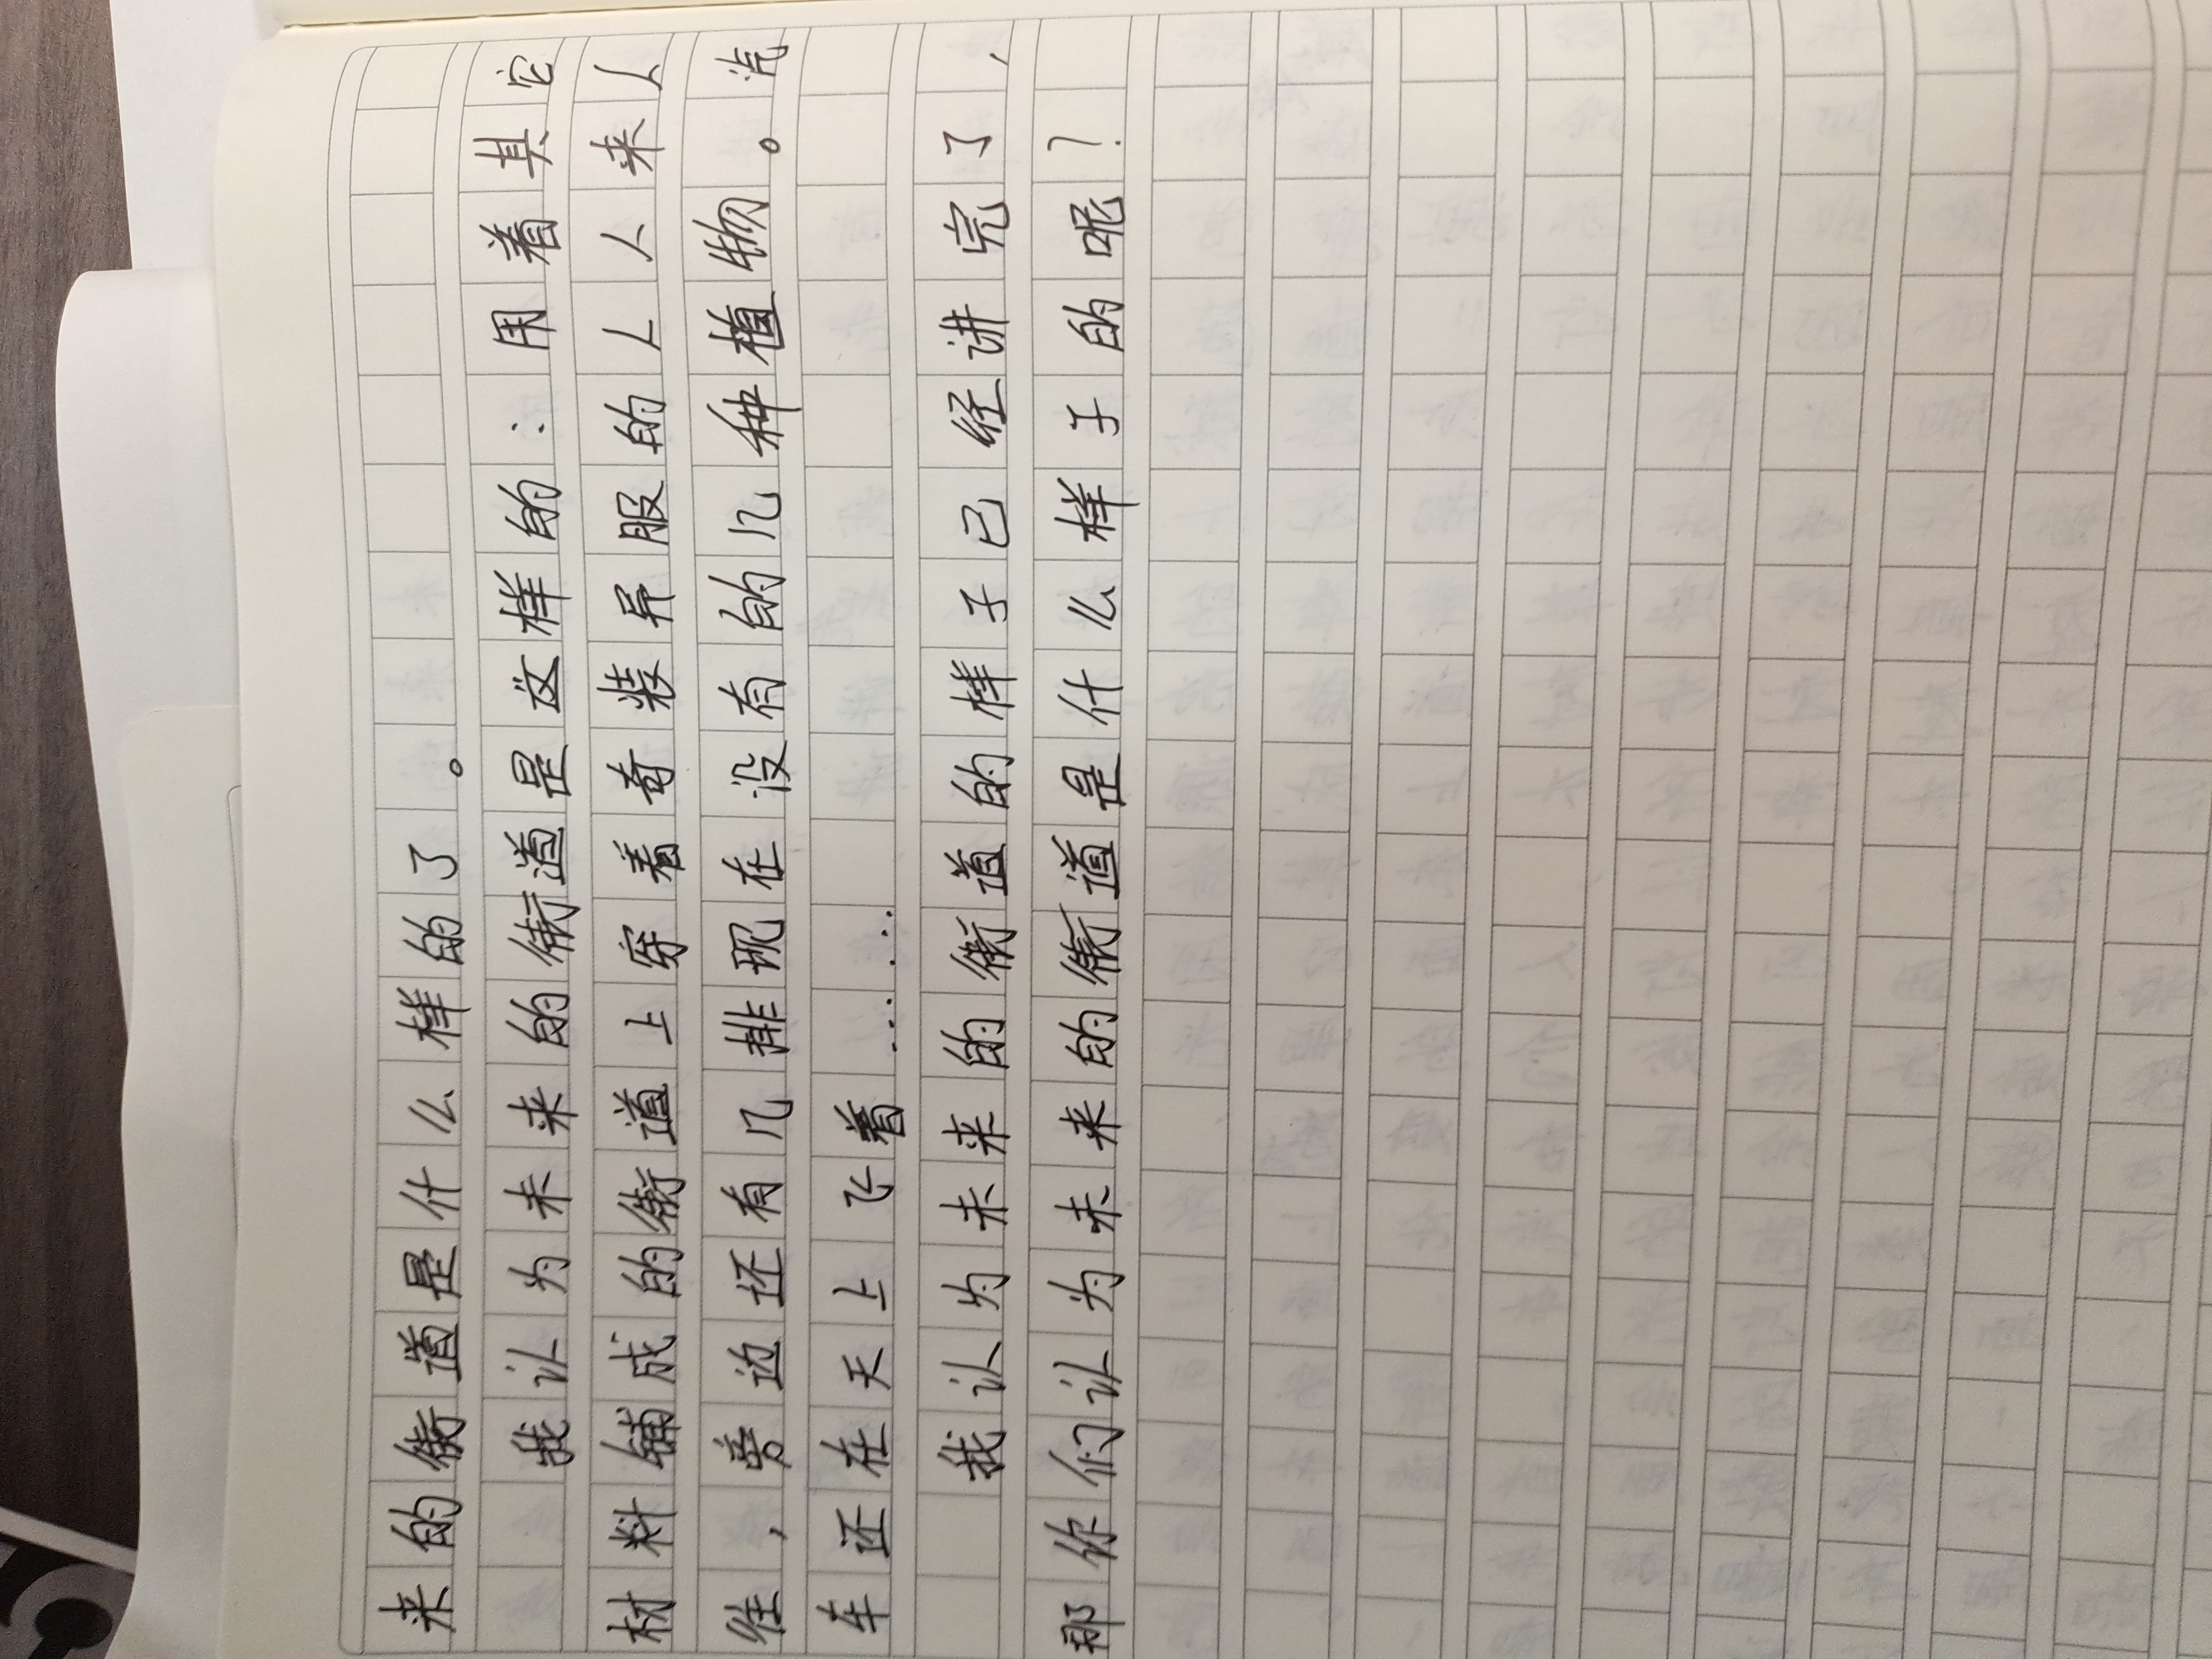 来的街道是什么样的了。
我认为未来的街道是这样的:用着其它
材料铺成的街道上穿着奇装异服的人人来人
往,旁边还有几排现在没有的几种植物。汽
车还在天上飞着……
我认为未来的街道的样子已经讲完了,
那你们认为未来的街道是什么样子的呢?